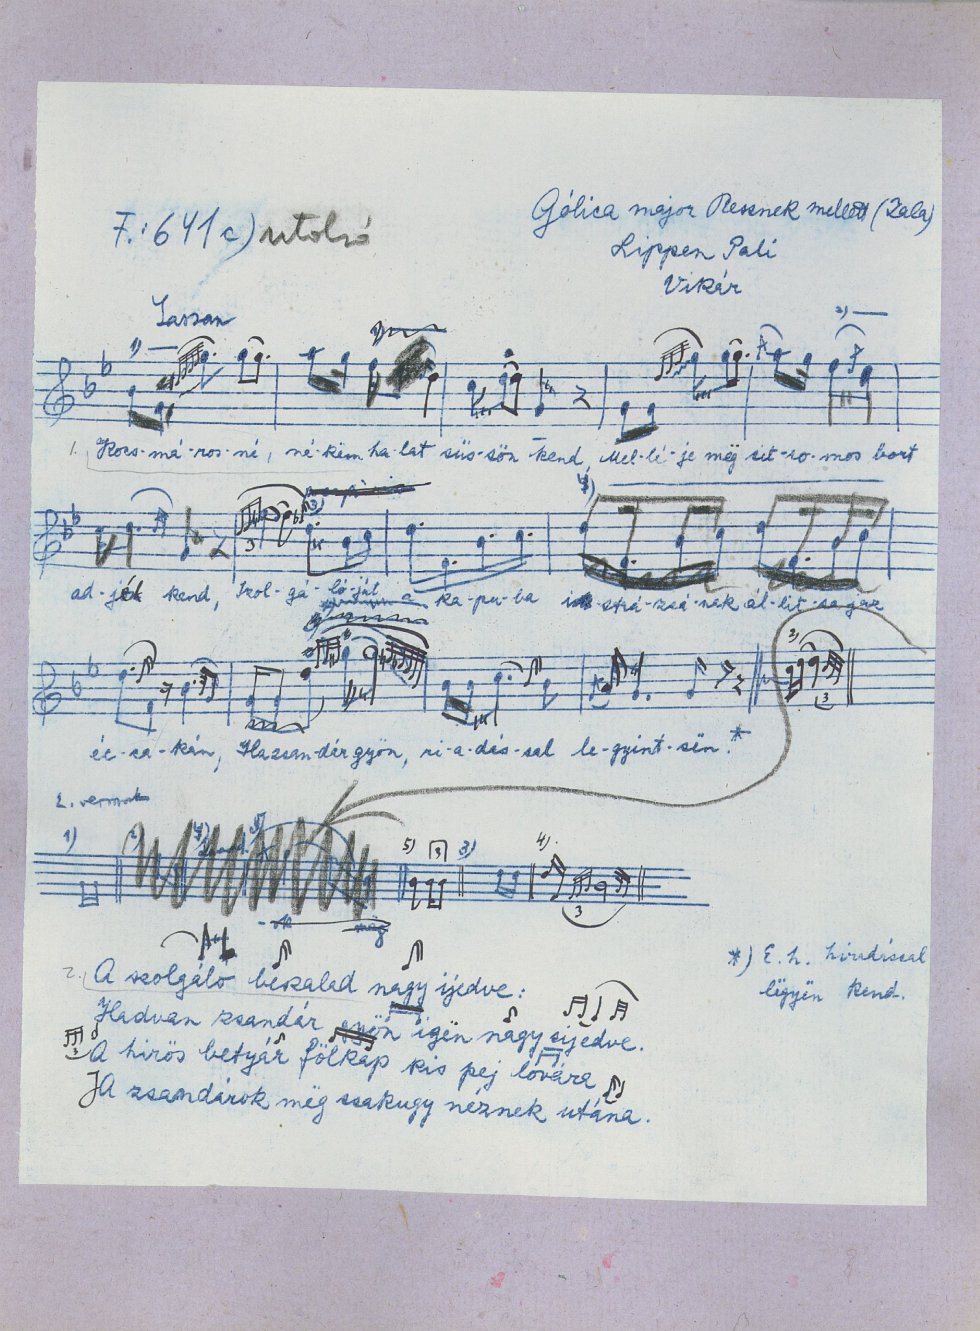 F.: 641 c) utolsó
Gólica major Resznek mellett (Zala)
Lippen Pali
Vikár
Lassan
1)
2)
1. Kocs-má-ros-né, né-këm ha-lat süs-sön kend, Mel-lé-je még cit-ro-mos bort
3
ad-jék kend, Szol-gá-ló-ját a ka-pu-ba is strá-zsá-nak ál-lit-sa
3)
3
éc-ca-kán, Ha zsan-dár gyön, ri-a-dás-sal le-gyint-sën. *
2. versszak
1)
5) 3 3) 4)
3
2. A szolgáló beszalad nagy ijedve:
Hadvan zsandár gyön igën nagy sijedve.
3 A hirös betyár fölkap kis pej lovára
A zsandárok még csakugy néznek utána.
*) E. h. hiradással
légyën kend.